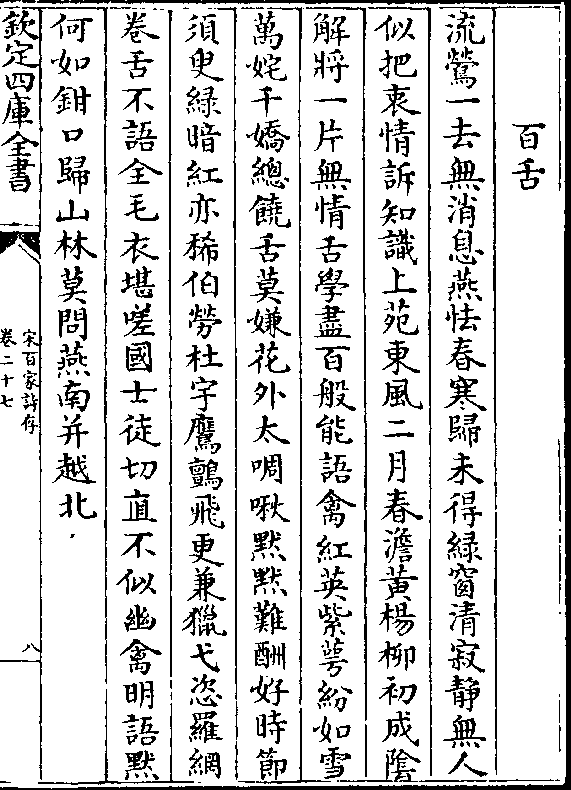 百舌
流鶯一去無消息燕怯春寒歸未得緑窗清寂靜無人
似把衷情訴知識上苑東風二月春澹黄楊柳初成陰
解將一片無情舌學盡百般能語禽紅英紫萼紛如雪
萬姹千嬌總饒舌莫嫌花外太啁啾黙黙難酬好時節
須臾緑暗紅亦稀伯勞杜宇鷹鸇飛更兼獵弋恣羅網
卷舌不語全毛衣堪嗟國士徒切直不似幽禽明語黙
何如鉗口歸山林莫問燕南并越北
欽定四庫全書
宋百家詩存
卷二十七
八